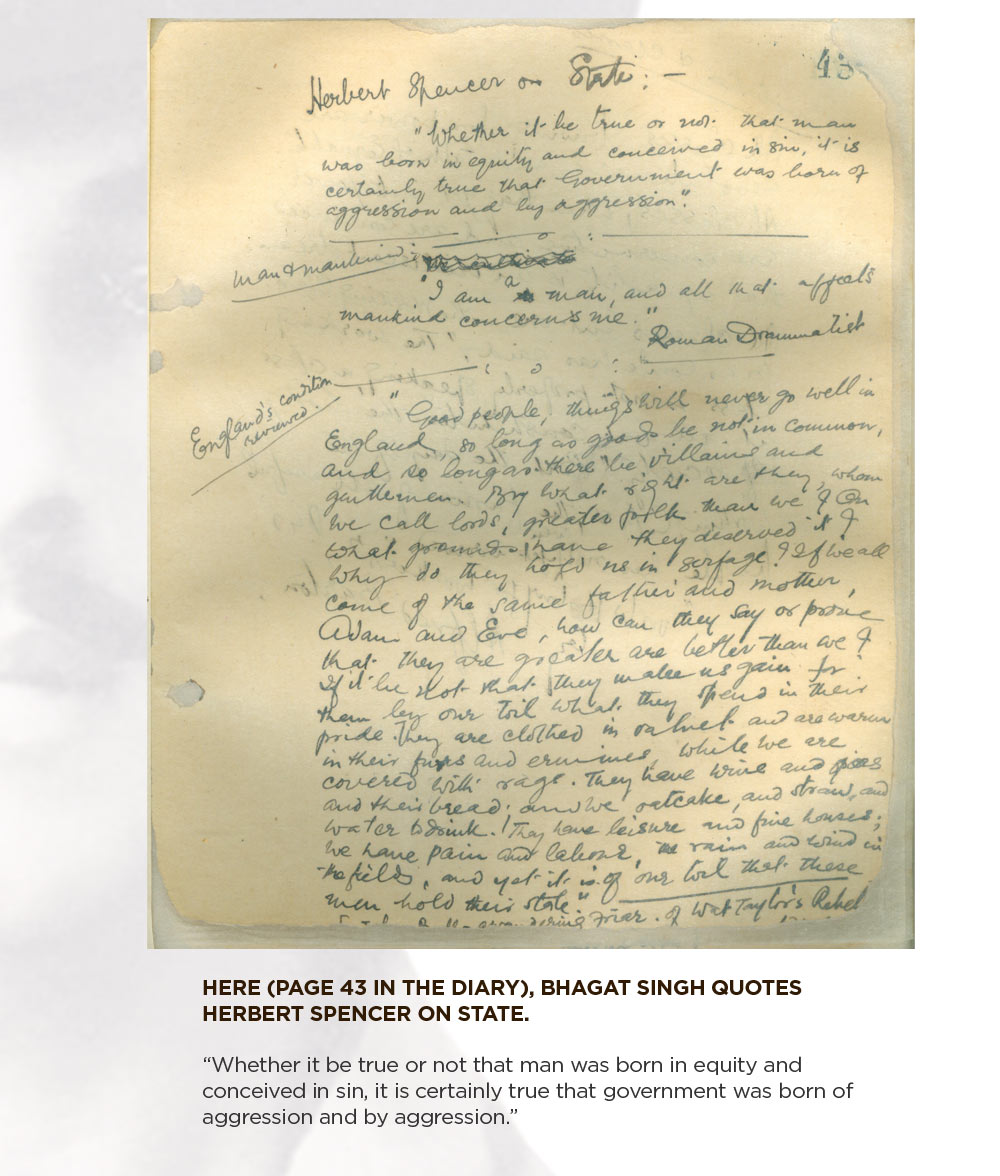 43
Herbert Spencer on State: —
"Whether it be true or not that man
was born in equity and conceived in sin, it is
certainly true that Government was born of
aggression and by aggression."
Man & mankind:
"I am a man, and all that affects
mankind concerns me."
Roman Drammatist
England's condition
reviewed.
"Good people, things will never go well in
England, so long as goods be not in common,
and so long as there be villains and
gentlemen. By what right are they, whom
we call lords, greater folk than we? On
what grounds have they deserved it?
Why do they hold us in serfage? If we all
come of the same father and mother,
Adam and Eve, how can they say or prove
that they are greater are better than we?
If it be not that they make us gain for
them by our toil what they spend in their
pride. They are clothed in velvet and are warm
in their furs and ermines, while we are
covered with rags. They have wine and
and their bread; and we oatcake, and straw, and
water to drink. They have leisure and fine houses;
we have pain and labour, the rain and wind in
the fields, and yet it is of our toil that these
men hold their state."
Friar. of Wat Taylor's Rebel
HERE (PAGE 43 IN THE DIARY), BHAGAT SINGH QUOTES
HERBERT SPENCER ON STATE.
“Whether it be true or not that man was born in equity and
conceived in sin, it is certainly true that government was born of
aggression and by aggression.”